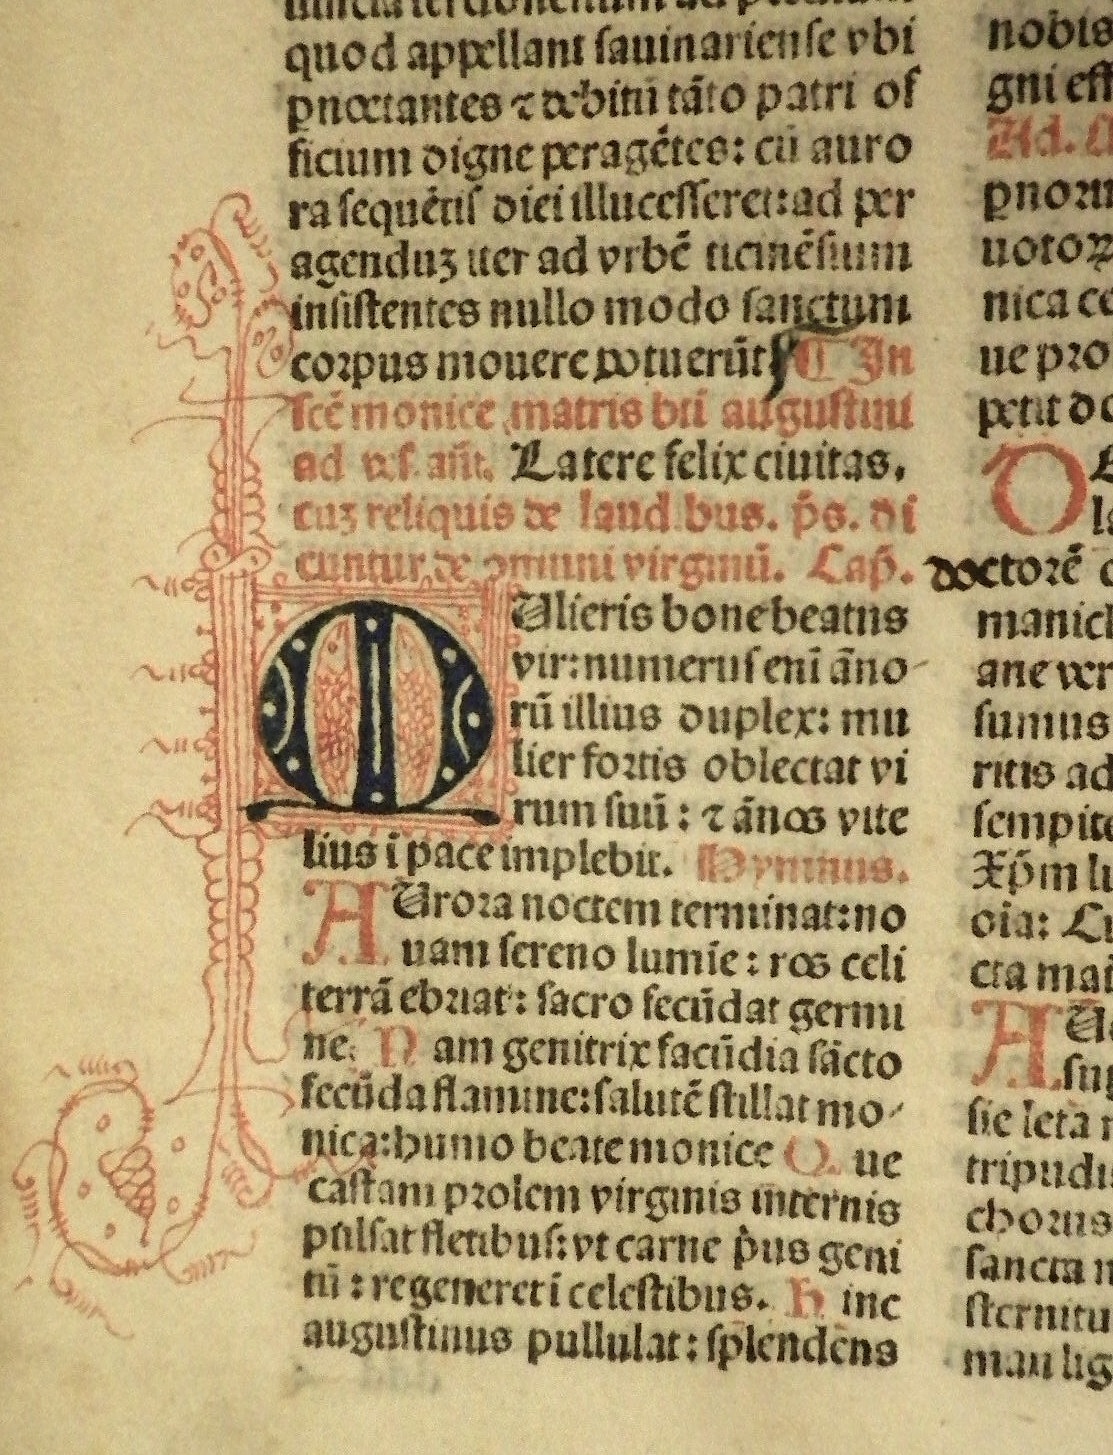 quod appellant sauinariense vbi
pnoctantes ⁊ debitū tāto patri of
ficium digne peragētes: cū auro
ra sequētis diei illucesseret: ad per
agenduꝫ iter ad vrbē ticinēsium
insistentes nullo modo sanctum
corpus mouere potuerūt ¶ In
scē monice matris bti augustini
ad vesꝑ. añt. Latere felix ciuitas.
cuꝫ reliquis de laud bus. p̄s. di
cuntur de omnni virginū. Cap̄.
MUlieris bone beatus
vir: numerus enī āno
rū illius duplex: mu
lier fortis oblectat vi
rum suū: ⁊ ānos vite
lius ī pace implebit. Hymnus.
AUrora noctem terminat: no
uam sereno lumīe: ros celi
terrā ebriat: sacro fecūdat germi
ne. Nam genitrix facūdia sācto
fecūda flamine: salutē stillat mo
nica: humo beate monice Que
castam prolem virginis internis
pulsat fletibus: vt carne p̓us geni
tū: regeneret ī celestibus. Hinc
augustinus pullulat: splendens
nobis
gni eff
Ad.
pnorm
uotoꝝ
nica ce
ue pro
petit do
O
doctorē
manich
ane ver
sumus
ritis ad
sempite
Xp̄m lu
oia:
cta mai
A
sie leta
tripudi
chorus
sancta
sternitu
man lig